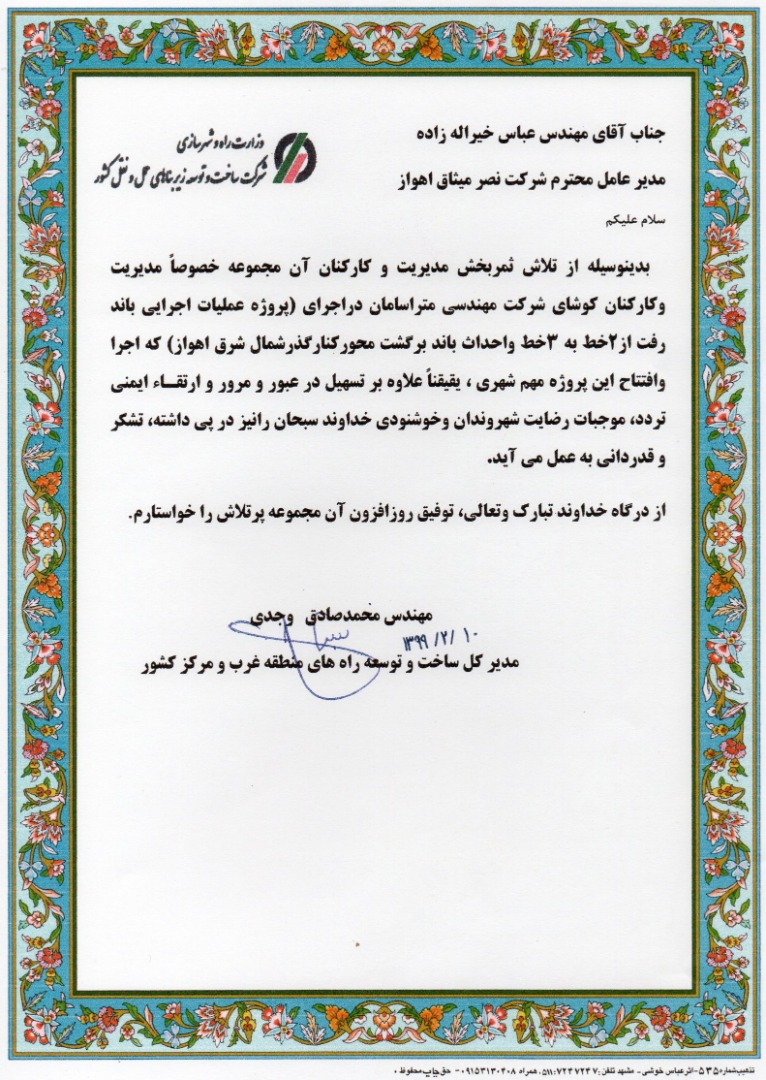 جناب آقای مهندس عباس خیراله زاده
مدیر عامل محترم شرکت نصر میثاق اهواز
وزارت راه و شهرسازی
شرکت ساخت و توسعه زیربناهای حمل و نقل کشور
سلام علیکم
بدینوسیله از تلاش ثمربخش مدیریت و کارکنان آن مجموعه خصوصاً مدیریت
وکارکنان کوشای شرکت مهندسی متراسامان دراجرای (پروژه عملیات اجرایی باند
رفت از۲خط به ۳خط واحداث باند برگشت محورکنارگذرشمال شرق اهواز) که اجرا
وافتتاح این پروژه مهم شهری ، یقیقناً علاوه بر تسهیل در عبور و مرور و ارتقـــاء ایمنی
تردد، موجبات رضایت شهروندان وخوشنودی خداوند سبحان رانیز در پی داشته، تشکر
و قدردانی به عمل می آید.
از درگاه خداوند تبارک وتعالی، توفیق روزافزون آن مجموعه پرتلاش را خواستارم.
مهندس محمدصادق وجدی
۱۳۹۹/۲/۱۰
مدیر کل ساخت و توسعه راه های منطقه غرب و مرکز کشور
تذهیب‌شماره۵۳۵-اثرعباس خوشی - مشهد تلفن:۷۲۴۷۲۴۷:۰۵۱۱ همراه ۰۹۱۵۳۱۳۰۴۰۸- حق‌چاپ‌محفوظ ۰